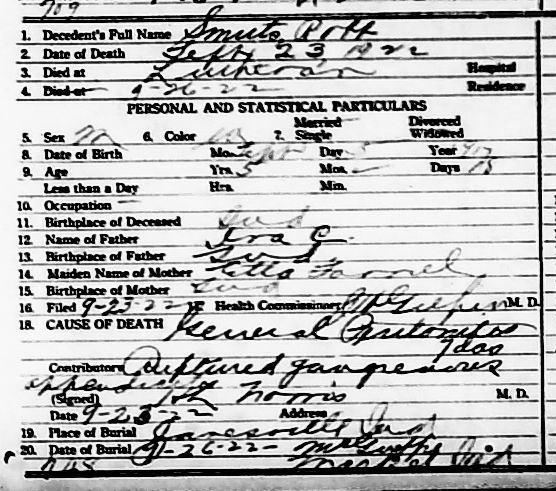 709
1. Decedent's Full Name Smuts Pott
2. Date of Death Sept 23 1922
3. Died at Lutheran Hospital
4. Died at 9-26-22 Residence
PERSONAL AND STATISTICAL PARTICULARS
5. Sex M 6. Color W 7. Married Single Divorced Widowed
8. Date of Birth Mo. Sept Day 5 Year
9. Age Yrs. 5 Mos. – Days 18
Less than a Day Hrs. Min.
10. Occupation —
11. Birthplace of Deceased Ind
12. Name of Father Ira C.
13. Birthplace of Father Ind.
14. Maiden Name of Mother Etta
15. Birthplace of Mother Ind
16. Filed 9-23-22 Health Commissioner M. D.
18. CAUSE OF DEATH General Peritonitis
7 das
Contributory Ruptured gangrenous
appendicitis
(Signed) Norris M. D.
Date 9-23-22 Address
19. Place of Burial Ind
20. Date of Burial 9-26-22 –
Ind